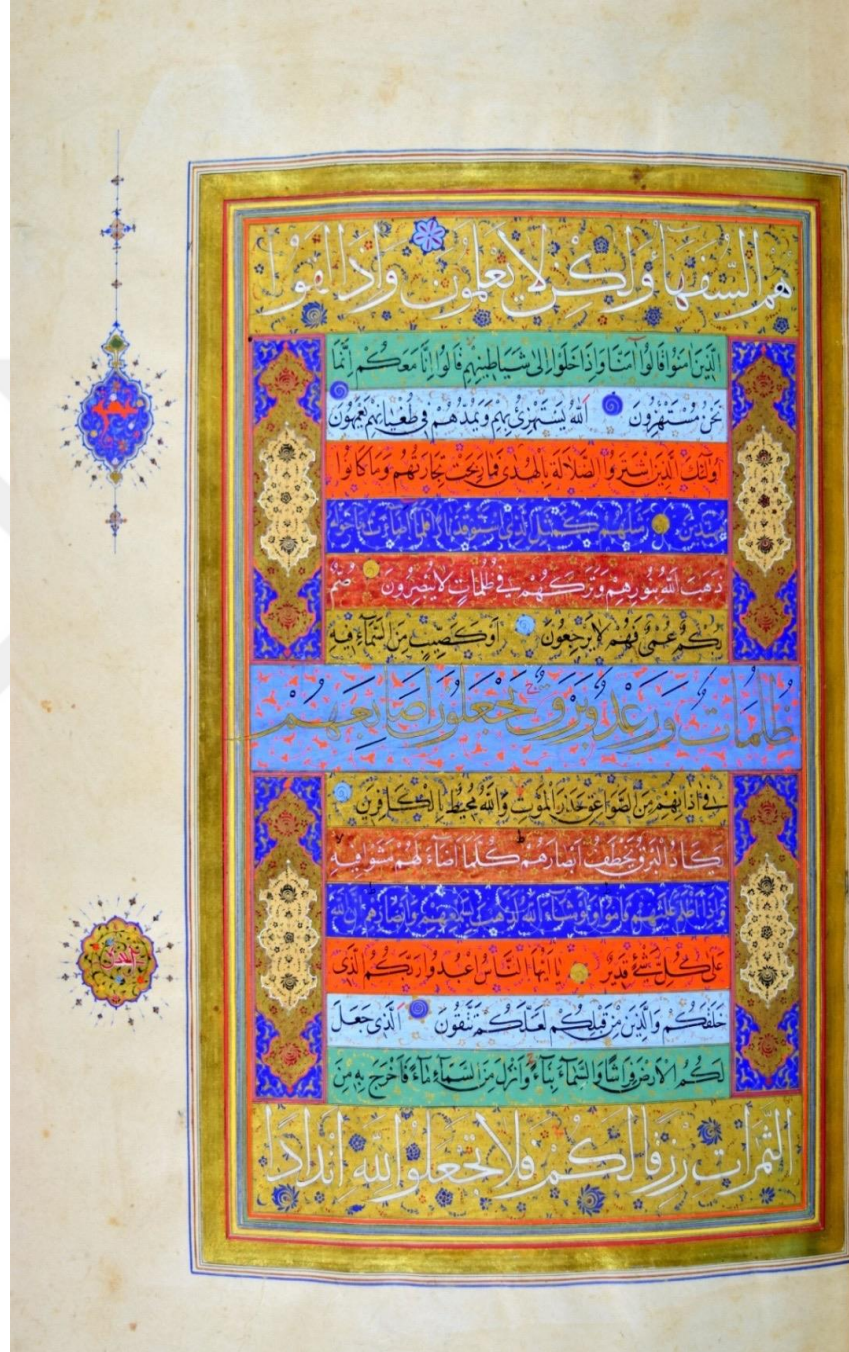 هُمُ السُّفَهَاءُ وَلٰكِنْ لَا يَعْلَمُونَ وَاِذَا لَقُوا
الَّذِينَ اٰمَنُوا قَالُوا اٰمَنَّا وَاِذَا خَلَوْا اِلٰى شَيَاطِينِهِمْ قَالُوا اِنَّا مَعَكُمْ اِنَّمَا
نَحْنُ مُسْتَهْزِؤُنَ اَللّٰهُ يَسْتَهْزِئُ بِهِمْ وَيَمُدُّهُمْ فِى طُغْيَانِهِمْ يَعْمَهُونَ
اُولٰئِكَ الَّذِينَ اشْتَرَوُا الضَّلَالَةَ بِالْهُدٰى فَمَا رَبِحَتْ تِجَارَتُهُمْ وَمَا كَانُوا
مُهْتَدِينَ مَثَلُهُمْ كَمَثَلِ الَّذِى اسْتَوْقَدَ نَارًا فَلَمَّا اَضَاءَتْ مَا حَوْلَهُ
ذَهَبَ اللّٰهُ بِنُورِهِمْ وَتَرَكَهُمْ فِى ظُلُمَاتٍ لَا يُبْصِرُونَ صُمٌّ
بُكْمٌ عُمْىٌ فَهُمْ لَا يَرْجِعُونَ اَوْ كَصَيِّبٍ مِنَ السَّمَاءِ فِيهِ
ظُلُمَاتٌ وَرَعْدٌ وَبَرْقٌ يَجْعَلُونَ اَصَابِعَهُمْ
فِى اٰذَانِهِمْ مِنَ الصَّوَاعِقِ حَذَرَ الْمَوْتِ وَاللّٰهُ مُحِيطٌ بِالْكَافِرِينَ
يَكَادُ الْبَرْقُ يَخْطَفُ اَبْصَارَهُمْ كُلَّمَا اَضَاءَ لَهُمْ مَشَوْا فِيهِ
وَاِذَا اَظْلَمَ عَلَيْهِمْ قَامُوا وَلَوْ شَاءَ اللّٰهُ لَذَهَبَ بِسَمْعِهِمْ وَاَبْصَارِهِمْ اِنَّ اللّٰهَ
عَلٰى كُلِّ شَىْءٍ قَدِيرٌ يَا اَيُّهَا النَّاسُ اعْبُدُوا رَبَّكُمُ الَّذِى
خَلَقَكُمْ وَالَّذِينَ مِنْ قَبْلِكُمْ لَعَلَّكُمْ تَتَّقُونَ اَلَّذِى جَعَلَ
لَكُمُ الْاَرْضَ فِرَاشًا وَالسَّمَاءَ بِنَاءً وَاَنْزَلَ مِنَ السَّمَاءِ مَاءً فَاَخْرَجَ بِهِ مِنَ
الثَّمَرَاتِ رِزْقًا لَكُمْ فَلَا تَجْعَلُوا لِلّٰهِ اَنْدَادًا